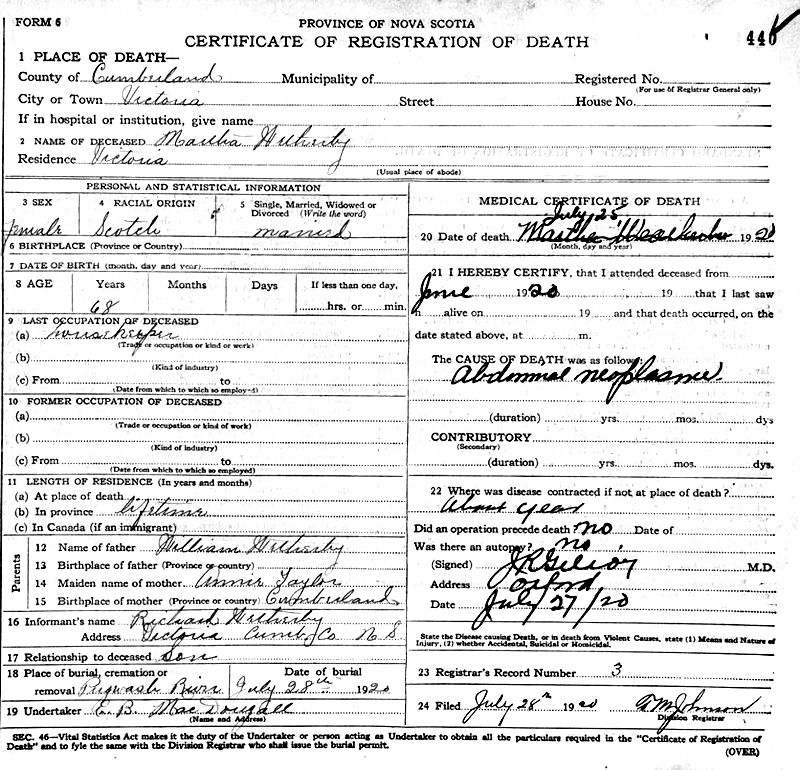 FORM 6
PROVINCE OF NOVA SCOTIA
CERTIFICATE OF REGISTRATION OF DEATH
440
1 PLACE OF DEATH—
County of Cumberland Municipality of Registered No.
(For use of Registrar General only)
City or Town Victoria Street House No.
If in hospital or institution, give name
2 NAME OF DECEASED Martha Wetherby
Residence Victoria
(Usual place of abode)
PERSONAL AND STATISTICAL INFORMATION
3 SEX 4 RACIAL ORIGIN 5 Single, Married, Widowed or Divorced (Write the word)
female Scotch married
6 BIRTHPLACE (Province or Country)
7 DATE OF BIRTH (month, day and year)
8 AGE Years Months Days If less than one day,
68 hrs. or min.
9 LAST OCCUPATION OF DECEASED
(a) housekeeper
(Trade or occupation or kind or work)
(b)
(Kind of industry)
(c) From to
(Date from which to which so employed)
10 FORMER OCCUPATION OF DECEASED
(a)
(Trade or occupation or kind of work)
(b)
(Kind of industry)
(c) From to
(Date from which to which so employed)
11 LENGTH OF RESIDENCE (In years and months)
(a) At place of death
(b) In province lifetime
(c) In Canada (if an immigrant)
Parents
12 Name of father William Wetherby
13 Birthplace of father (Province or country)
14 Maiden name of mother Annie Taylor
15 Birthplace of mother (Province or country) Cumberland
16 Informant's name Richard Wetherby
Address Victoria Cumb Co N S
17 Relationship to deceased son
18 Place of burial, cremation or removal Pugwash River Date of burial July 28th 1920
19 Undertaker E. B. MacDougall
(Name and Address)
MEDICAL CERTIFICATE OF DEATH
July 25
20 Date of death Martha 1920
(Month, day and year)
21 I HEREBY CERTIFY, that I attended deceased from
June 1920 19 that I last saw
h alive on 19 and that death occurred, on the
date stated above, at m.
The CAUSE OF DEATH was as follows:
Abdominal neoplasme.
(duration) yrs. mos. dys
CONTRIBUTORY
(Secondary)
(duration) yrs. mos. dys.
22 Where was disease contracted if not at place of death?
About year
Did an operation precede death? no Date of
Was there an autopsy? no
(Signed) M.D.
Address Oxford
Date July 27/20
State the Disease causing Death, or in death from Violent Causes, state (1) Means and Nature of
Injury, (2) whether Accidental, Suicidal or Homicidal.
23 Registrar's Record Number 3
24 Filed July 28th 1920 Johnson
Division Registrar
SEC. 46—Vital Statistics Act makes it the duty of the Undertaker or person acting as Undertaker to obtain all the particulars required in the "Certificate of Registration of
Death" and to fyle the same with the Division Registrar who shall issue the burial permit.
(OVER)